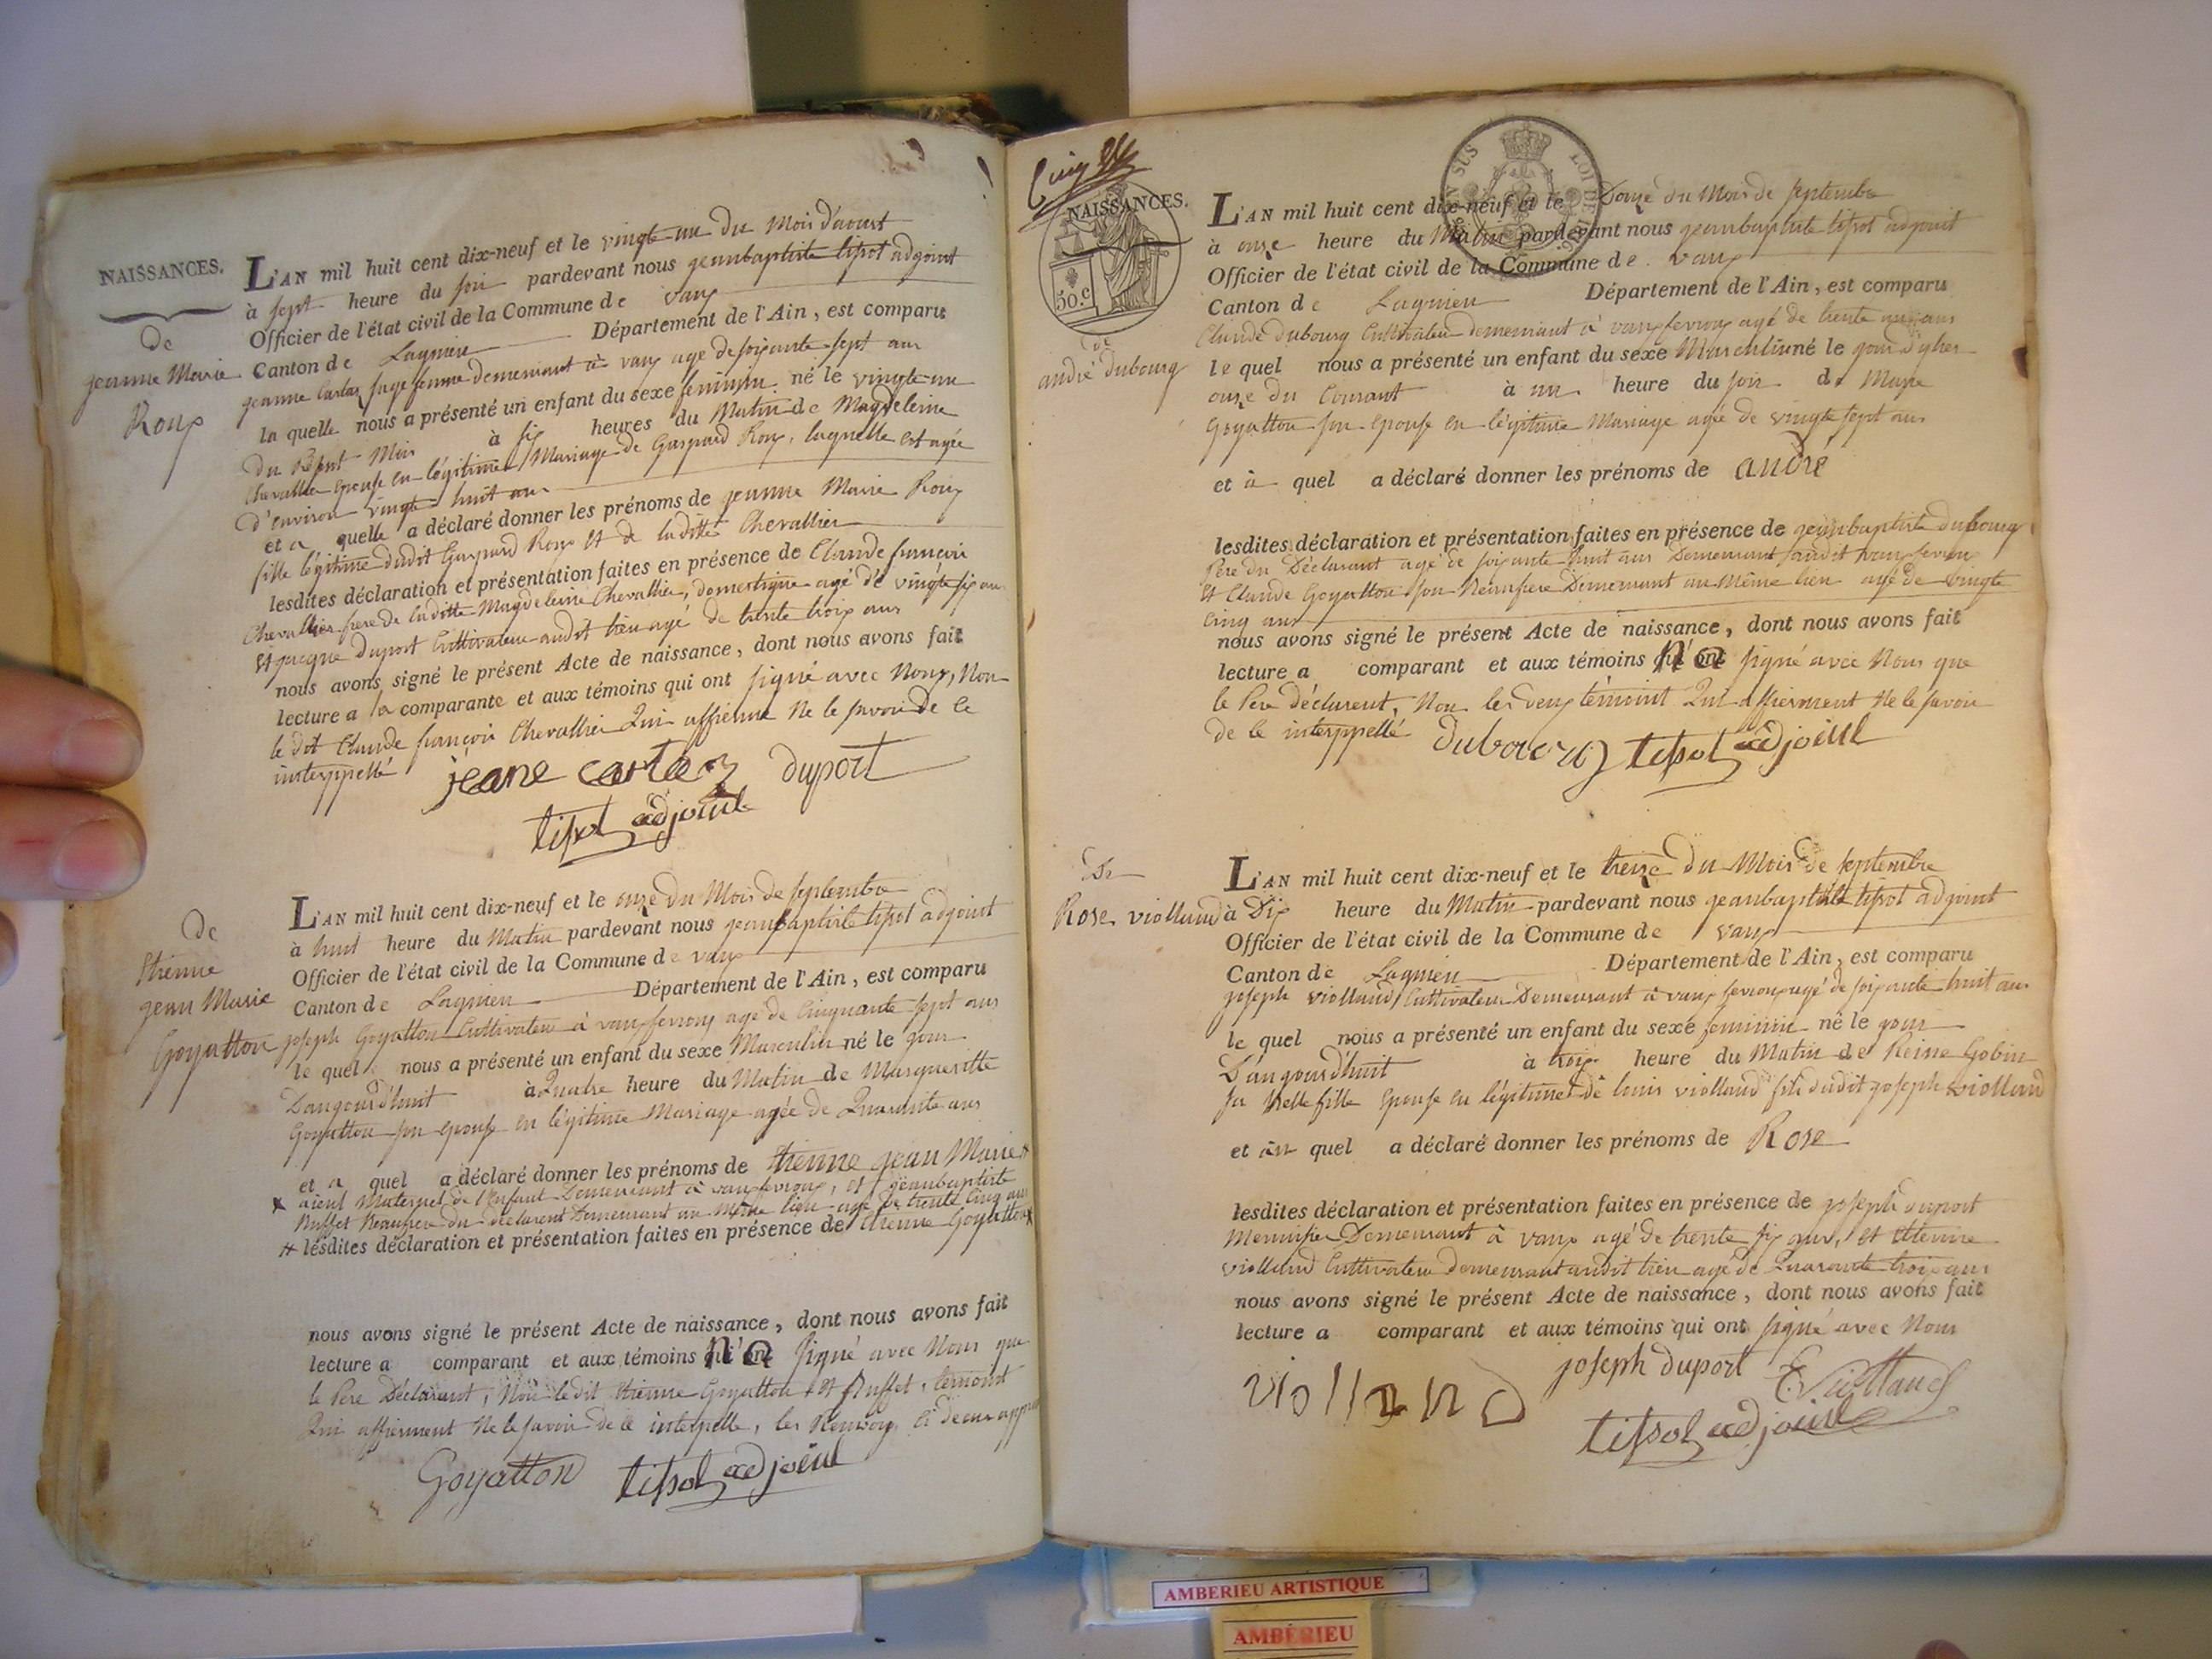 NAISSANCES.
de
jeanne Marie
Roux
L'AN mil huit cent dix-neuf et le vingt un du Mois d'aoust
à sept heure du soir pardevant nous jeanbaptiste tissot adjoint
Officier de l'état civil de la Commune de vaux
Canton de Lagnieu Département de l'Ain, est comparu
jeanne Cartaz sage femme demeurant à vaux agé de soixante sept ans
la quelle nous a présenté un enfant du sexe feminin né le vingt un
du Mois à six heures du Matin de Magdeleine
Chevallier epouse en légitime Mariage de Gaspard Roux, laquelle est agée
d'environ vingt huit ans
et a quelle a déclaré donner les prénoms de jeanne Marie Roux
fille légitime dudit Gaspard Roux et de laditte Chevallier
lesdites déclaration et présentation faites en présence de Claude françois
Chevallier frere de laditte Magdeleine Chevallier, domestique agé de vingt six ans
Et jacque duport Cultivateur audit lieu agé de trente trois ans
nous avons signé le présent Acte de naissance, dont nous avons fait
lecture a la comparante et aux témoins qui ont signé avec Nous, Non
le dit Claude françois Chevallier Qui affierme Ne le savoir de ce
interppellé
jeane cartaz duport
tissot adjoint
De
Etienne
jean Marie
Goyatton
L'AN mil huit cent dix-neuf et le onze du Mois de septembre
à huit heure du Matin pardevant nous jeanbaptiste tissot adjoint
Officier de l'état civil de la Commune de vaux
Canton de Lagnieu Département de l'Ain, est comparu
joseph Goyatton Cultivateur à vauxfevroux agé de Cinquante sept ans
le quel nous a présenté un enfant du sexe Masculin né le jour
D'aujourd'huit à Quatre heure du Matin de Margueritte
Goyatton son epouse en légitime Mariage agée de Quarante ans
et a quel a déclaré donner les prénoms de Etienne jean Marie
x aieul Maternel de l'enfant Demeurant à vauxfevroux, et jeanbaptiste
Buffet Beaufrere du déclarent Demeurant au même lieu agé de trente Cinq ans
lesdites déclaration et présentation faites en présence de Etienne Goyatton x
nous avons signé le présent Acte de naissance, dont nous avons fait
lecture a comparant et aux témoins n'a signé avec Nous que
le Pere Déclarant, Non ledit Etienne Goyatton et Buffet, temoint
Qui affierment Ne le savoir de ce interpelle, les Renvoy
Goyatton tissot adjoint
NAISSANCES.
50.c
de
andré dubourg
L'AN mil huit cent dix-neuf et le Douze du Mois de septembre
à onze heure du Matin pardevant nous jeanbaptiste tissot adjoint
Officier de l'état civil de la Commune de vaux
Canton de Lagnieu Département de l'Ain, est comparu
Claude dubourg Cultivateur demeurant à vauxfevroux agé de trente ans
le quel nous a présenté un enfant du sexe Masculin né le jour d'yher
onze du Courant à un heure du soir de Marie
Goyatton son epouse en légitime Mariage agée de vingt sept ans
et à quel a déclaré donner les prénoms de andré
lesdites déclaration et présentation faites en présence de jeanbaptiste dubourg
Pere du Déclarant agé de soixante huit ans Demeurant audit vauxfevroux
Et Claude Goyatton son Beaufrere Demeurant au même lieu agé de vingt
Cinq ans
nous avons signé le présent Acte de naissance, dont nous avons fait
lecture a comparant et aux témoins n'a signé avec Nous que
le Pere déclarent, Non les deux témoint Qui affierment Ne le savoir
de ce interppellé dubourg tissot adjoint
De
Rose violland
L'AN mil huit cent dix-neuf et le treize du Mois de septembre
à Dix heure du Matin pardevant nous jeanbaptiste tissot adjoint
Officier de l'état civil de la Commune de vaux
Canton de Lagnieu Département de l'Ain, est comparu
joseph violland Cultivateur Demeurant à vauxfevroux agé de soixante huit ans
le quel nous a présenté un enfant du sexe feminin né le jour
D'aujourd'huit à trois heure du Matin de Reine Gobin
sa Belle fille Epouse en légitime de louis viollaud fils dudit joseph viollaud
et au quel a déclaré donner les prénoms de Rose
lesdites déclaration et présentation faites en présence de joseph duport
Menuisier Demeurant à vaux agé de trente six ans, et Etienne
viollaud Cultivateur demeurant audit lieu agé de Quarante trois ans
nous avons signé le présent Acte de naissance, dont nous avons fait
lecture a comparant et aux témoins qui ont signé avec Nous
violland joseph duport E. viollaud
tissot adjoint
AMBERIEU ARTISTIQUE
AMBÉRIEU